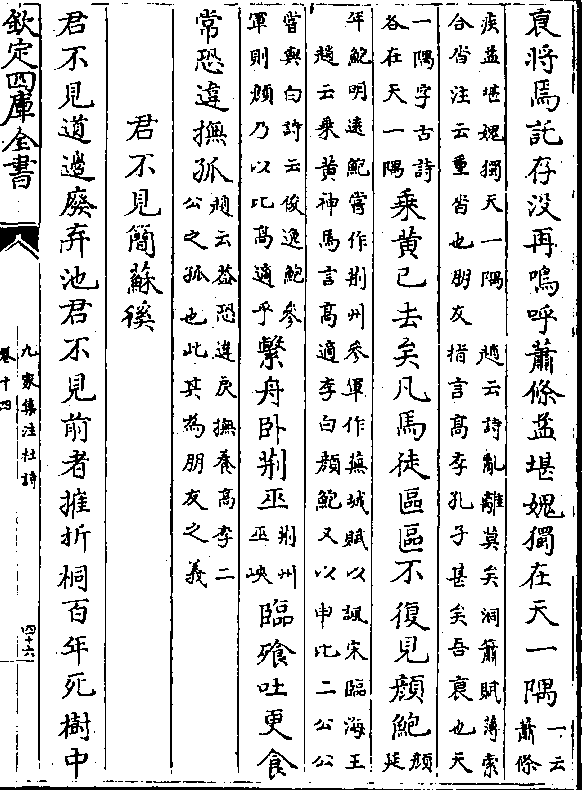 衰將焉託存没再嗚呼蕭條益堪媿獨在天一隅一云
蕭條
疾益堪媿獨天一隅 趙云詩亂離莫矣洞簫賦薄索
合沓注云重沓也朋友 指言髙李孔子甚矣吾衰也天
一隅字古詩
各在天一隅乘黄已去矣凡馬徒區區不復見顔鮑顔
延
年鮑明遠鮑嘗作荆州參軍作蕪城賦以諷宋臨海王
趙云乘黄神馬言髙適李白顔鮑又以申比二公公
嘗與白詩云俊逸鮑參
軍則顔乃以比髙適乎繫舟卧荆巫荆州
巫峽臨飱吐更食
常恐違撫孤趙云葢恐違戾撫養髙李二
公之孤也此其為朋友之義
君不見簡蘇徯
君不見道邊廢弃池君不見前者摧折桐百年死樹中
欽定四庫全書
九家集注杜詩
卷十四
四十六